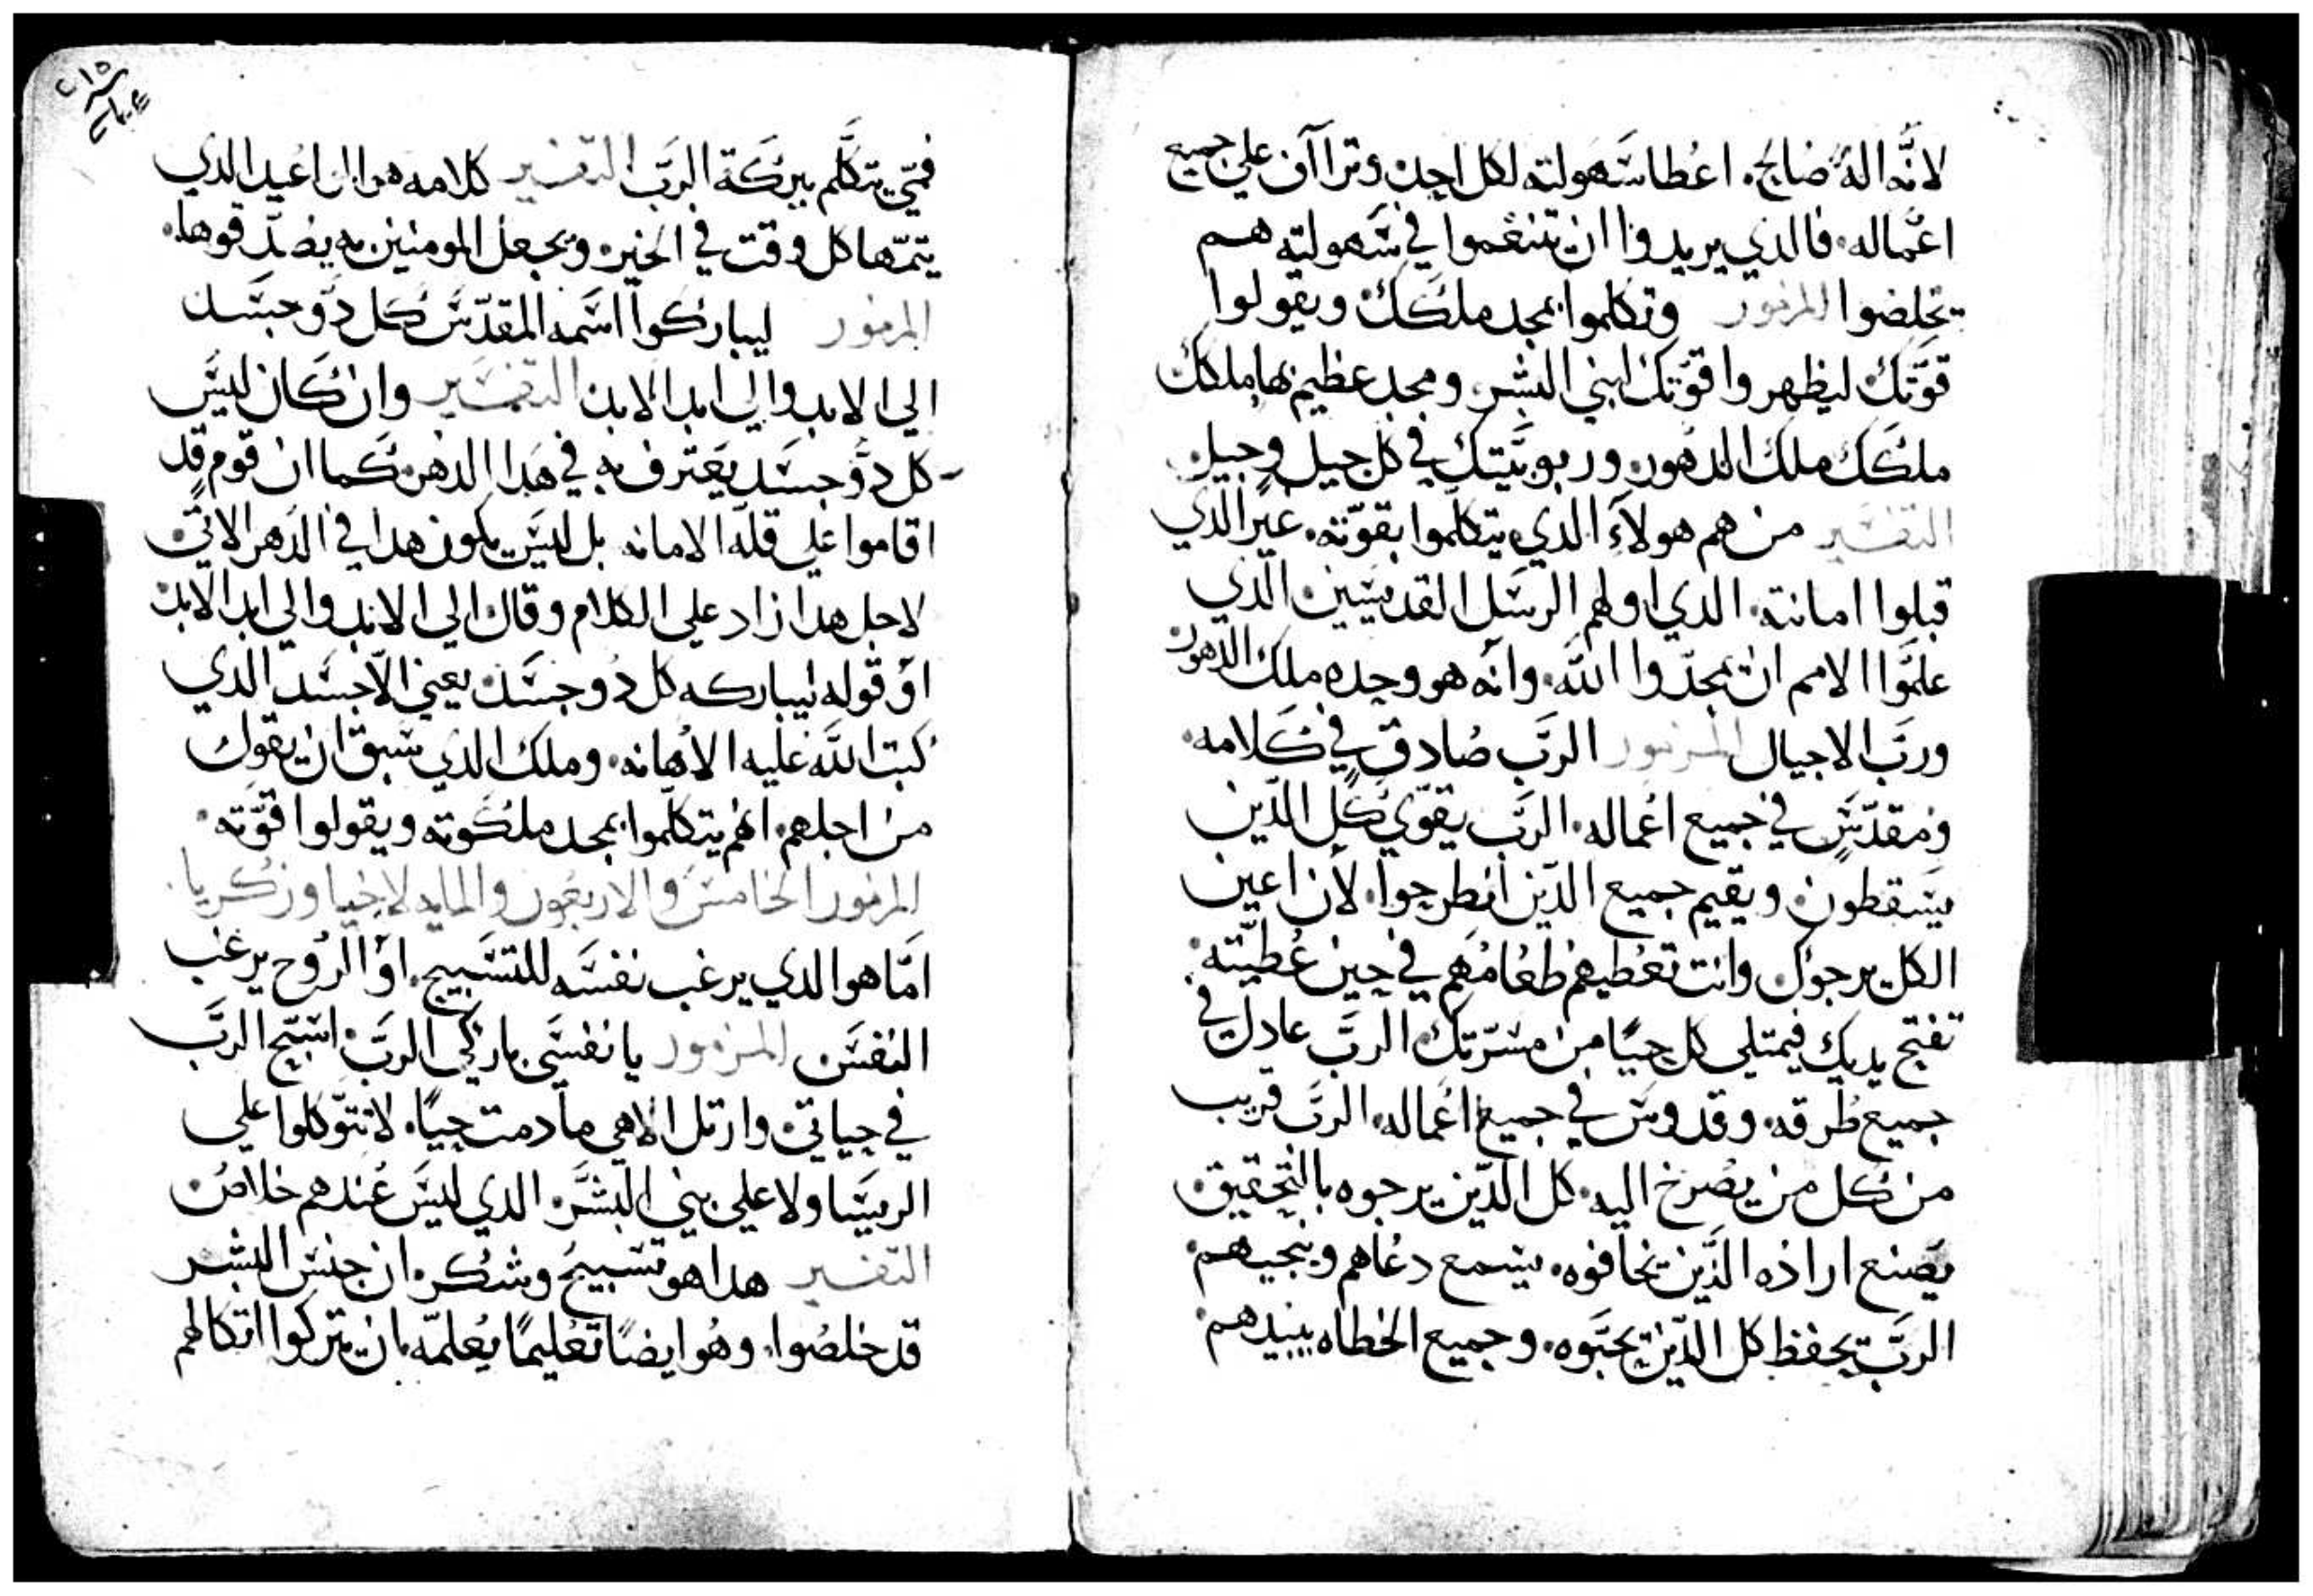 لانَّه الهٌ صالح. اعُطا سَهولته لكل احد. وتراآف علي جميع
اعُماله. فالدي يريدوا ان تنغموا في سَهولته هم
يخلصوا المزمور وتكلموا بمجد ملكك ويقولوا
قوّتك ليظهروا قوّتك لبني البشر. ومجد عظيم بها ملكك
ملكك ملك الدهور. وربوبيّتك في كل جيل وجيل.
التفسير من هم هولآء الدي يتكلّموا بقوّته. غير الدي
قبلوا امانته. الدي اولهم الرسَل القديسَين الدي
علمَّوا الامم ان يمجدّوا اللَّه. وانه هو وحده ملك الدهور
وربَّ الاجيال المزمور الربَّ صُادق في كلامه.
ومقدّسَ في جميع اعُماله. الربَّ يقوّي كل الدّين
يسَقطون. ويقيم جميع الدّين انطرحوا. لان اعين
الكل يرجوك. وانت تعُطيهم طعُامُهم في حين عُطيّته.
تفتح يديك فيمتلي كل حيًا من مسَرّتك. الربَّ عادل في
جميع طُرقه. وقدوسَ في جميع اعُماله. الربَّ قريب
من كل من يصُرخ اليه. كل الدّين يرجوه بالتحقيق.
يصَنع اراده الدَّين يخافوه. يسَمع دعُاهم وينجيهم.
الربَّ يحفظ كل الدّين يحبَّوه. وجميع الخطاه يبيدهم.
٢١٥
فمتّي يتكلَّم ببركة الربَّ التفسير كلامه هو الاراعُيد الدي
يتمّها كل وقت في الخير. ويجعل المومنين به يصُدّقوها.
المزمور ليباركوا اسَمه المقدّسَ كل دو جسَد
الي الابد والي ابد الابد التفسير وان كان ليسَ
كل دو جسَد يعَترف به في هدا الدهر. كما ان قوم قد
اقاموا علي قلّه الامانه بل ليسَ يكون هدا في الدهر الاتي.
لاجل هدا زاد علي الكلام وقال الي الابد والي ابد الابد.
اوَ قوله ليباركه كل دو جسَد. يعني الاجسَد الدي
كتب اللَّه عليه الاهانه. وملك الدي سَبق ان يقول
من اجلهم. انهم يتكلّموا بمجد ملكوته ويقولوا قوّته.
المزمور الخامسَ والاربعُون والمايه لاحجيا وزكريا.
امَّا هو الدي يرغب نفسَه للتسَبيح. اوَ الروُح يرغب
النفسَ المزمور يا نفسَي باركي الربَّ. اسَبّح الربَّ
في حياتي. وارتل لالاهي ما دمت حيًا. لا تتوّكلوا علي
الريسَا ولا علي بني البشَر. الدي ليسَ عُندهم خلاصُ.
التفسير هدا هو تسَبيح وشكر. ان جنس البشر
قد خلصُوا. وهُو ايضًا تعُليمًا يعُلمّه. بان يتركوا اتكالهم